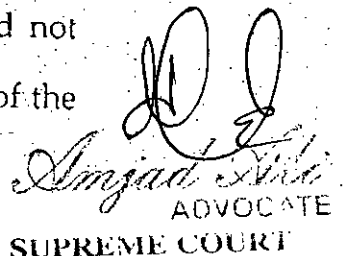 d not
of the
Amjad Ali
ADVOCATE
SUPREME COURT